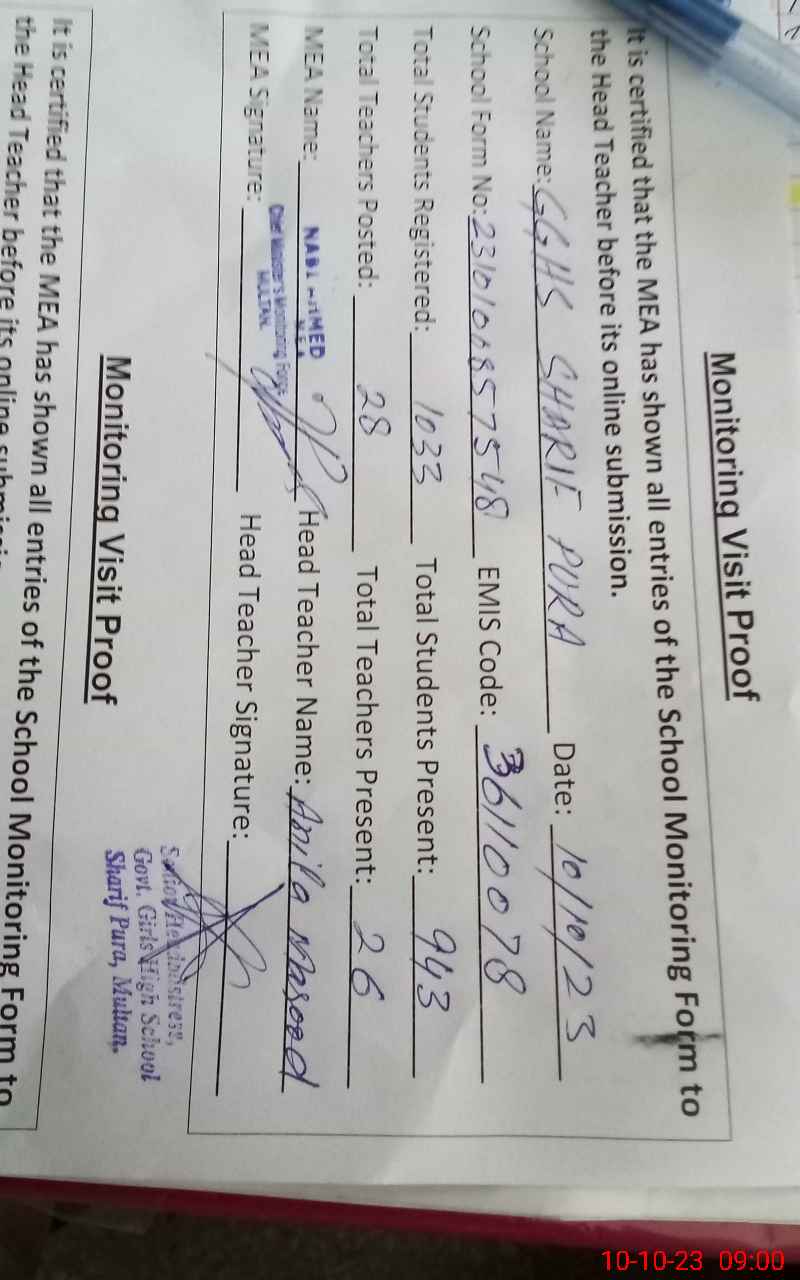 Monitoring Visit Proof
It is certified that the MEA has shown all entries of the School Monitoring Form to
the Head Teacher before its online submission.
School Name: GGHS SHARIF PURA Date: 10/10/23
School Form No: EMIS Code: 36110078
Total Students Registered: 1033 Total Students Present: 943
Total Teachers Posted: 28 Total Teachers Present: 26
MEA Name: Head Teacher Name: Anila Masood
MEA
Chief Minister's Monitoring Force
MULTAN.
MEA Signature: Head Teacher Signature:
Senior Headmistress,
Govt. Girls High School
Sharif Pura, Multan.
Monitoring Visit Proof
It is certified that the MEA has shown all entries of the School Monitoring Form to
the Head Teacher before its online
10-10-23 09:00